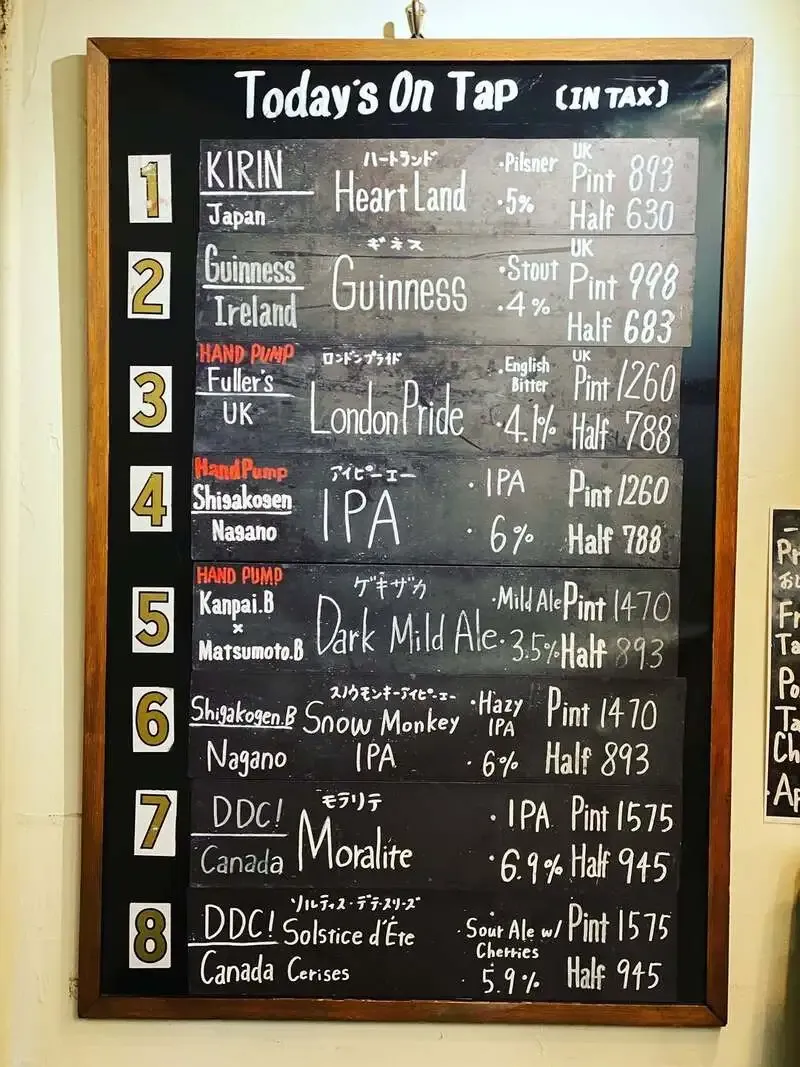 Today's On Tap (IN TAX)
1
KIRIN
Japan
ハートランド
Heart Land
・Pilsner
・5%
UK
Pint 893
Half 630
2
Guinness
Ireland
ギネス
Guinness
・Stout
・4%
UK
Pint 998
Half 683
3
HAND PUMP
Fuller's
UK
ロンドンプライド
London Pride
・English
Bitter
・4.1%
UK
Pint 1260
Half 788
4
Hand Pump
Shigakogen
Nagano
アイピーエー
IPA
・IPA
・6%
Pint 1260
Half 788
5
HAND PUMP
Kanpai.B
×
Matsumoto.B
ゲキザカ
Dark Mild Ale
・Mild Ale
・3.5%
Pint 1470
Half 893
6
Shigakogen.B
Nagano
スノウモンキーアイピーエー
Snow Monkey
IPA
・Hazy
IPA
・6%
Pint 1470
Half 893
7
DDC!
Canada
モラリテ
Moralite
・IPA
・6.9%
Pint 1575
Half 945
8
DDC!
Canada
ソルティス・デテ・スリーズ
Solstice d'Éte
Cerises
・Sour Ale w/
Cherries
・5.9%
Pint 1575
Half 945
Fr
Ta
Po
Ta
Ch